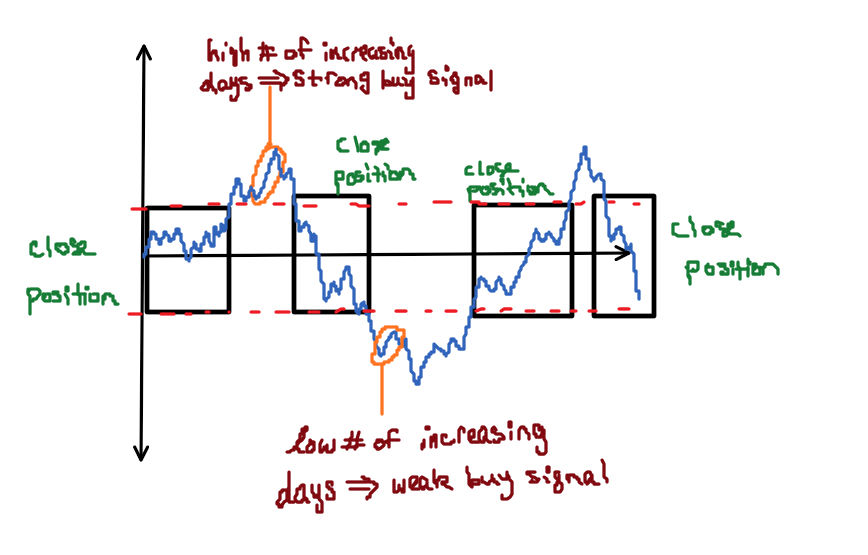 high # of increasing
days ⇒ strong buy signal
close
position
close
position
close
position
close
position
low # of increasing
days ⇒ weak buy signal